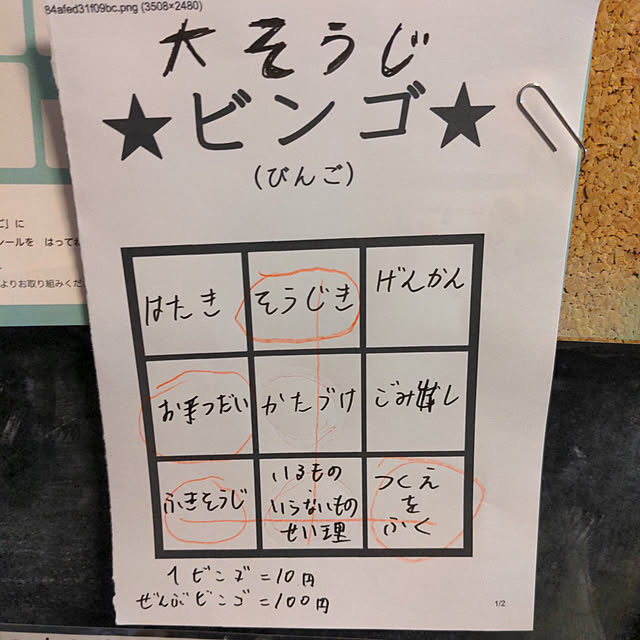 84afed31f09bc.png (3508×2480)
大そうじ
★ビンゴ★
(びんご)
はたき
そうじき
げんかん
お手つだい
かたづけ
ごみ出し
ふきそうじ
いるもの
いらないもの
せい理
つくえ
を
ふく
1ビンゴ=10円
ぜんぶビンゴ=100円
1/2
ご」に
シールを はってね
よりお取り組みくだ